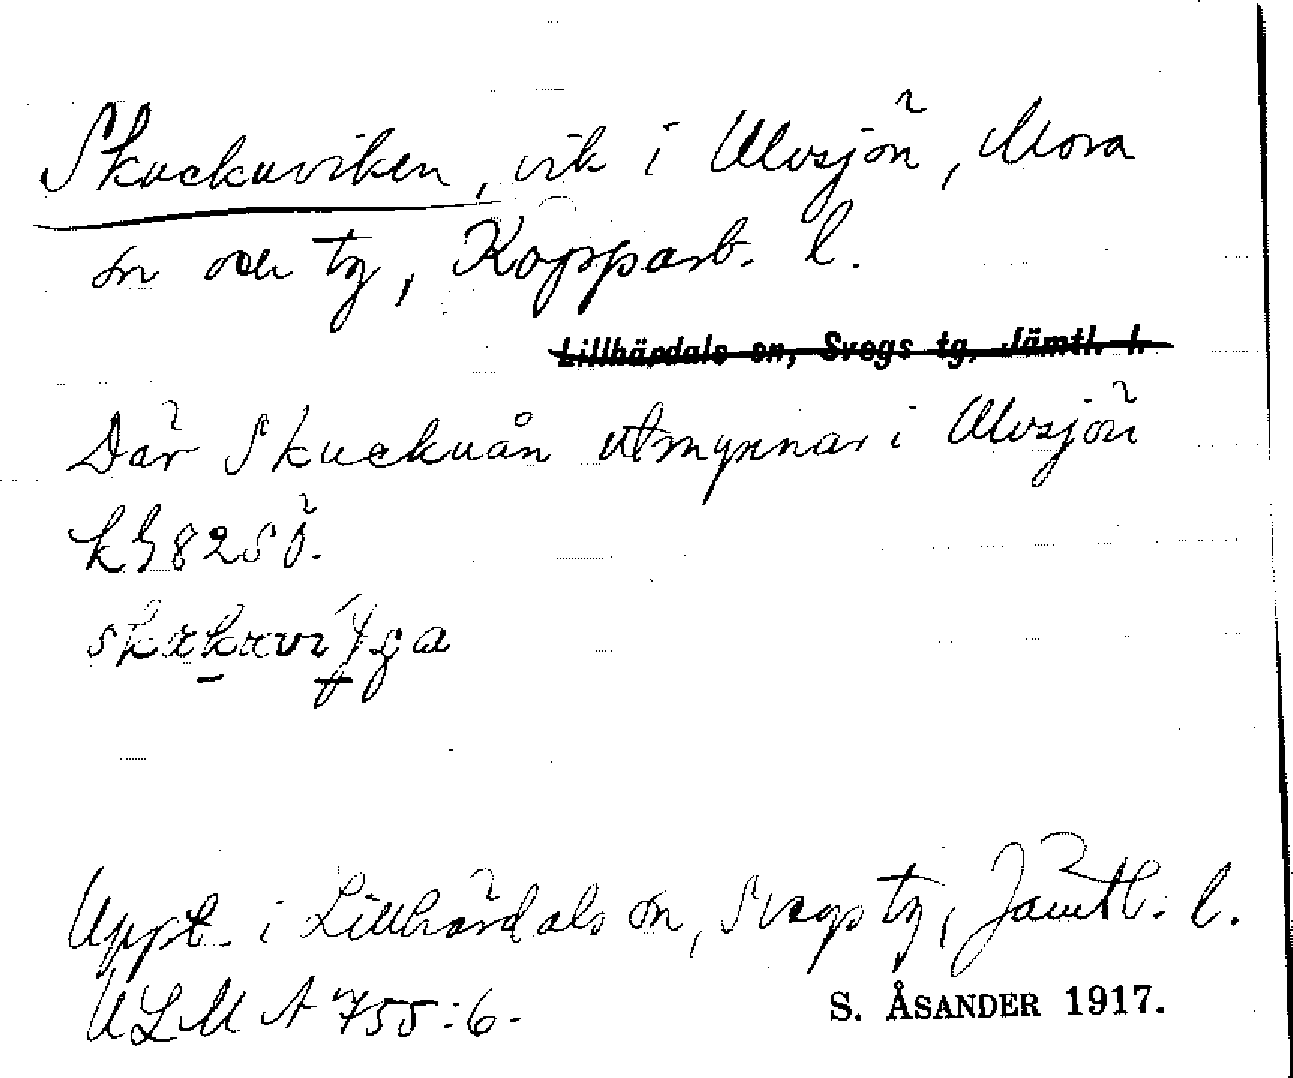 Skuckuviken, vik i Ulvsjön, Mora
sn och tg, Kopparb. l.
Lillhärdals sn, Svegs tg, Jämtl. l.
Där Skuckuån utmynnar i Ulvsjön
S. ÅSANDER 1917.
Uppt. i Lillhärdals sn, Svegs tg, Jämtl. l.
ULMA 755:6.